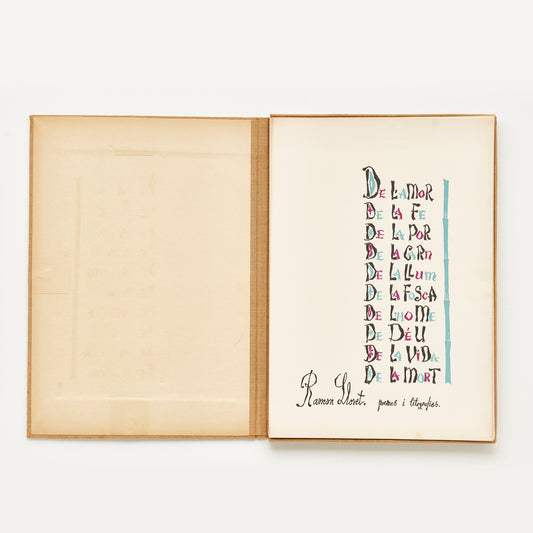 De L'AMOR
De LA Fe
De LA POR
De LA CARN
De LA LLum
De LA FOSCA
De L'HOMe
De DÉU
De LA ViDA
De LA MORT
Ramon Lloret. poemes i litografies.